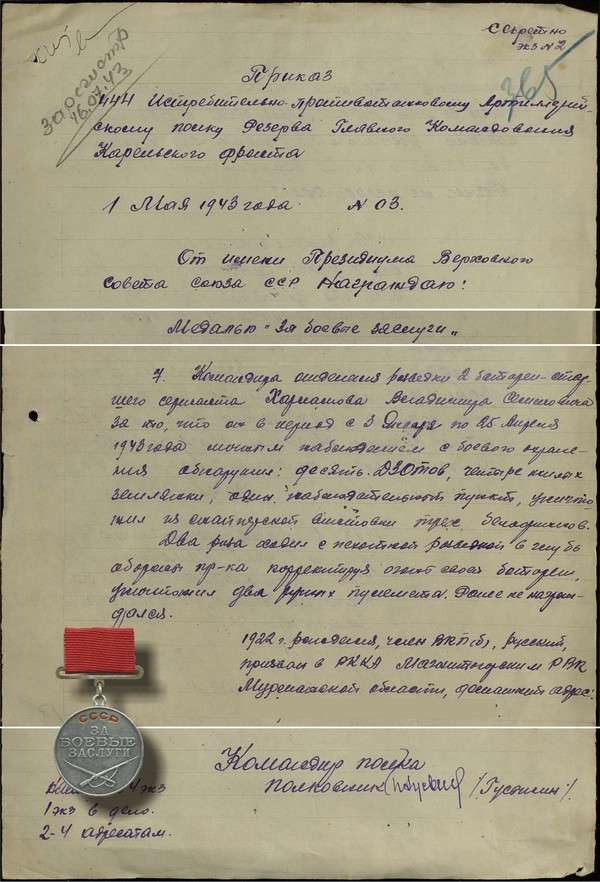 ССекретно
экз №2
зарегистр
16.07.43
365
Приказ
444 Истребительно-противотанковому Артиллерий-
скому полку Резерва Главного Командования
Карельского фронта
1 Мая 1943 года № 03.
От имени Президиума Верховного
Совета союза ССР Награждаю:
Медалью "За боевые заслуги"
7. Командира отделения разведки 2 батареи-стар-
шего сержанта Владимира Семеновича
за то, что он в период с 3 Января по 25 Апреля
1943 года личным наблюдением с боевого охране-
ния обнаружил: десять ДЗОТов, четыре жилых
землянки, один наблюдательный пункт, уничто-
жил из снайперской винтовки трех белофиннов.
Два раза ходил с пехотной разведкой в глубь
обороны пр-ка корректируя огонь своей батареи,
уничтожил два ручных пулемета. Ранее не награж-
дался.
1922 г. рождения, член ВКП(б), русский,
призван в РККА РВК
Мурманской области, домашний адрес:
СССР
ЗА
БОЕВЫЕ
ЗАСЛУГИ
Командир полка
полковник
4 экз
1 экз в дело.
2-4 адресатам.